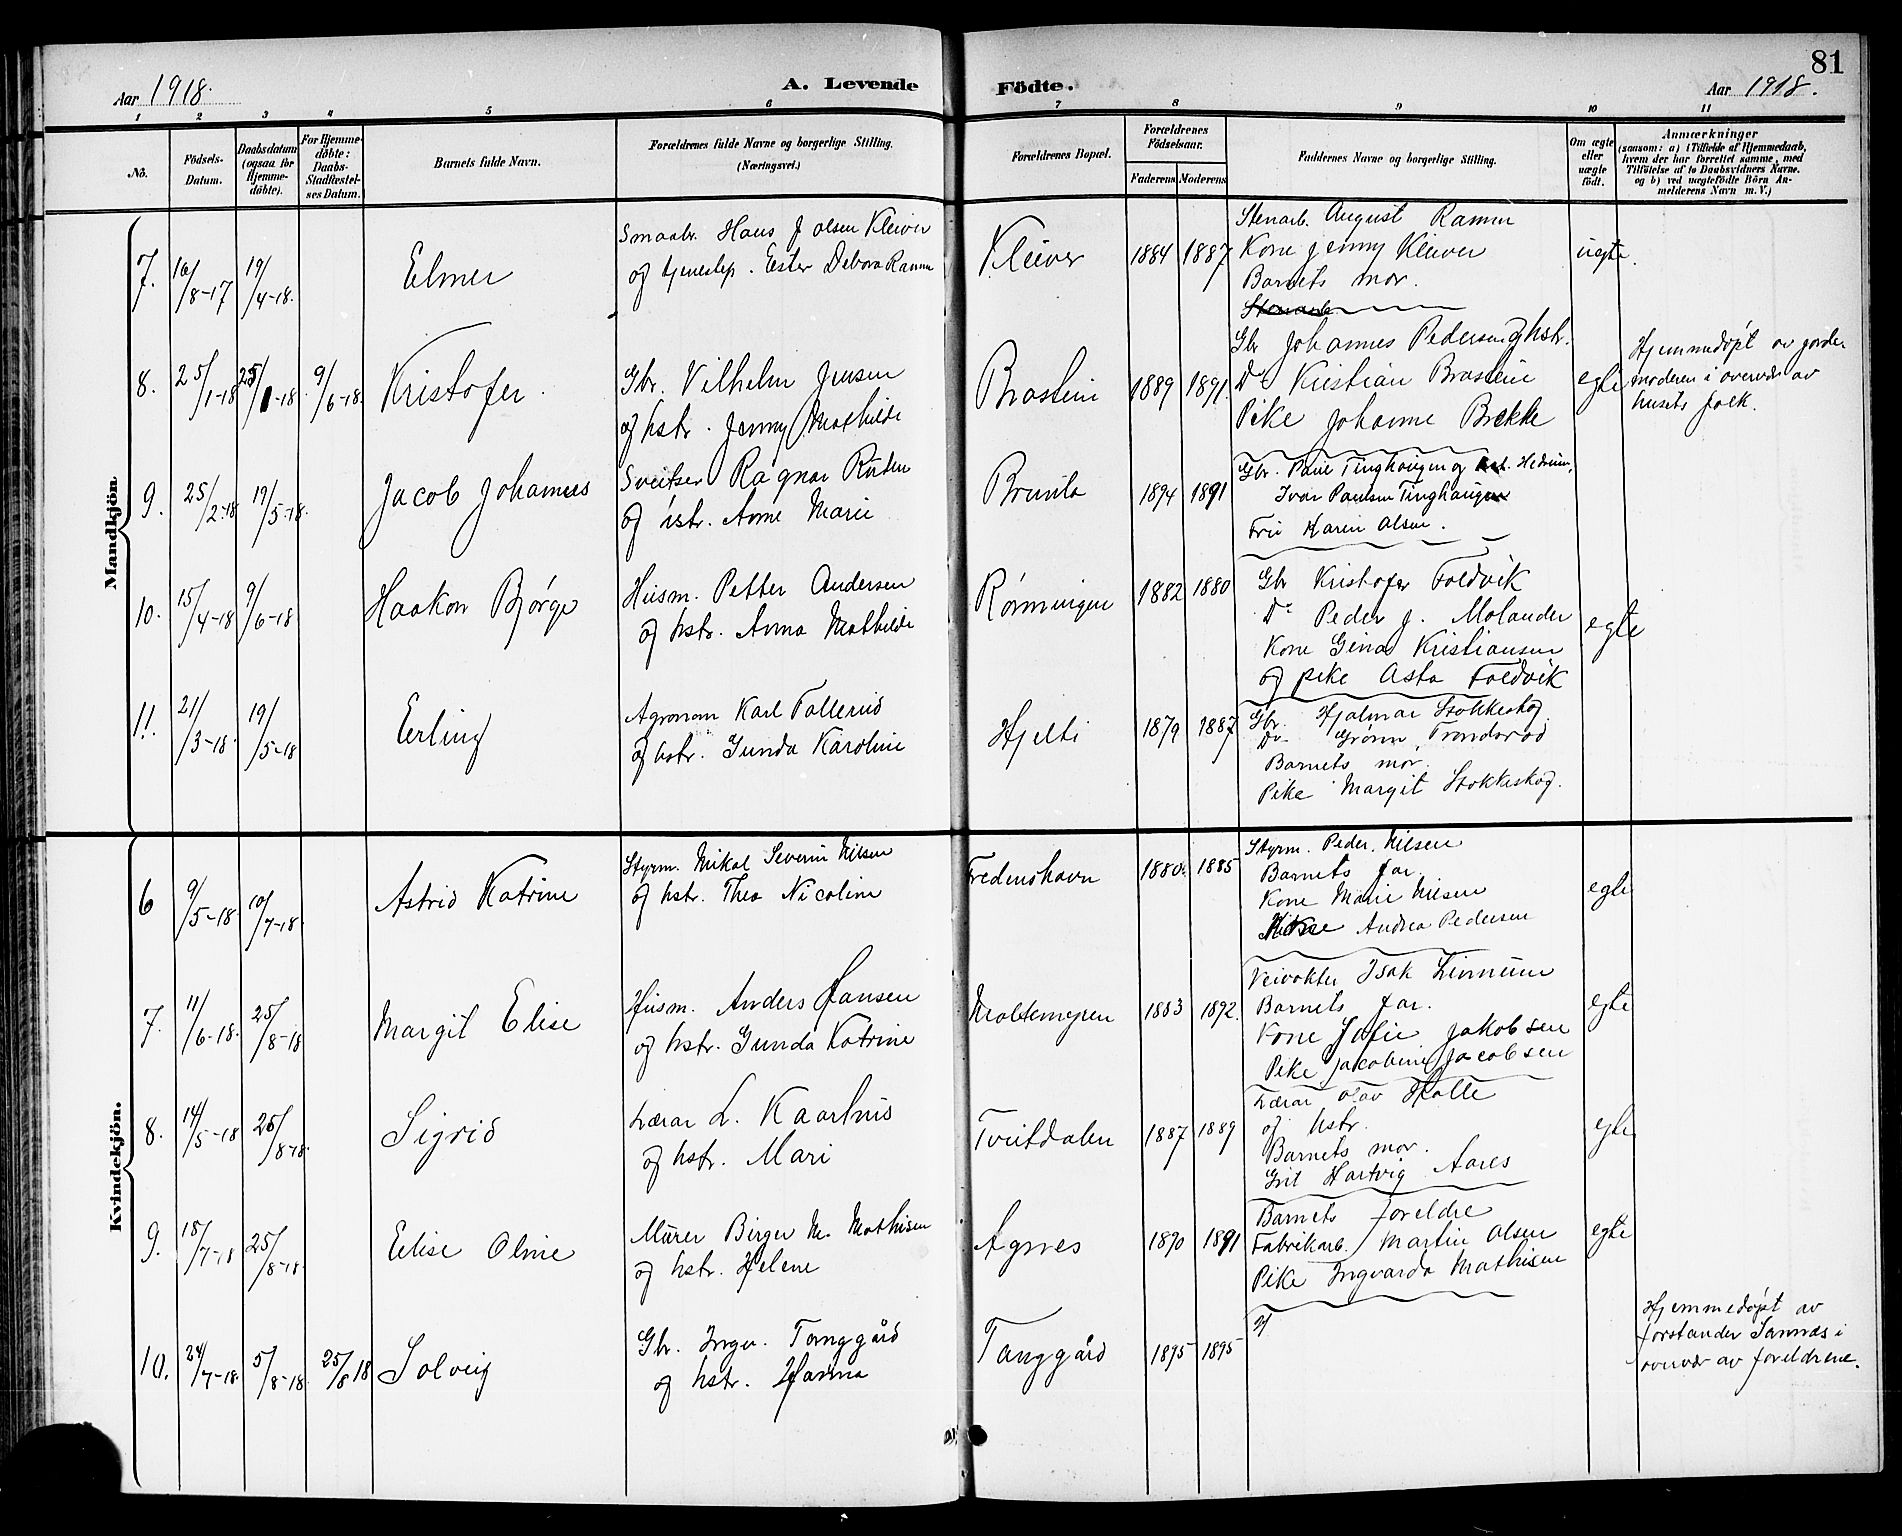 81
Aar 1918.
A. Levende Födte.
Aar 1918.
1 2 3 4 5 6 7 8 9 10 11
No.
Födsels-
Datum.
Daabsdatum
(ogsaa for
Hjemme-
döbte).
For Hjemme-
döbte:
Daabs-
Stadfæstel-
ses Datum.
Barnets fulde Navn.
Forældrenes fulde Navne og borgerlige Stilling.
(Næringsvei.)
Forældrenes Bopæl.
Forældrenes
Födselsaar.
Faderens Moderens
Faddernes Navne og borgerlige Stilling.
Om ægte
eller
uægte
födt.
Anmærkninger
(saasom: a) i Tilfælde af Hjemmedaab,
hvem der har forrettet samme, med
Tilföielse af to Daabsvidners Navne.
og b) ved uægtefödte Börn An-
melderens Navn m. V.)
Mandkjön.
7. 16/8-17 19/4-18. Elmer
Smaabr. Hans J Olsen Kleiver
og tjenestep. Ester Debora Ramm
Kleiver 1884 1887
Stenarb. August Ramm
Kone Jenny Kleiver
Barnets mor.
Stenarb
uegte.
8. 25/1-18 25/1-18 9/6-18. Kristofer.
Gbr. Vilhelm Jensen
og hstr. Jenny Mathilde
Brosteni 1889 1891.
Gbr Johannes Pedersen og hstr.
Do Kristian Brostein
Pike Johanne Brekke
egte
Hjemmedøpt av gorde-
moderen i overvær av
husets folk.
9. 25/2-18 19/5-18. Jacob Johannes
Sveitser Ragnar
og hstr. Anne Marie
Brunla 1894 1891
Gbr. Paul Tinghaugen og
Ivar Paulsen Tinghaugen
Fru Karen Olsen.
10. 15/4-18 9/6-18 Haakon Bjørge
Husm. Petter Andersen
og hstr. Anna Mathilde
Rønningen 1882 1880
Gbr Kristofer Foldvik
Do Peder J. Molander
Kone Gina Kristiansen
og pike Asta Foldvik
egte
11. 21/3-18. 19/5-18 Erling
Agronom Karl Follerud
og hstr. Gunda Karoline
Hjelti 1879 1887
Gbr. Hjalmar Stokkeskog
Do Grønn Trondsrød
Barnets mor.
Pike Margit Stokkeskog.
Kvindekjön.
6 9/5-18 10/7-18. Astrid Katrine
Styrm. Mikal Severin Nilsen
og hstr. Thea Nicoline
Fredenshavn 1880. 1885
Styrm. Peder Nilsen
Barnets far.
Kone Marie Nilsen
Andrea Pedersen
egte
7. 11/6-18. 25/8-18 Margit Elise
Husm. Anders Hansen
og hstr. Gunda Katrine
Moltemyren 1883 1892.
Veivokter Isak
Barnets far.
Kone Sofie Jakobsen
Pike Jakobine Jacobsen
egte
8. 14/5-18 25/8-18. Sigrid
Lærar L. Kaarhus
og hstr. Mari
Tveitdalen 1887 1889
Lærar Olav Holte
og hstr.
Barnets mor.
Hartvig Aares
egte
9. 18/7-18 25/8-18. Elise Oline
Murer Birger M. Mathisen
og hstr. Helene
Agnes 1890 1891
Barnets foreldre
Fabrikarb. Martin Olsen
Pike Ingvarda Mathisen
egte
10. 24/7-18. 5/8-18. 25/8 18 Solveig
Gbr. Ingv. Tanggård
og hstr. Hanna
Tanggård 1895 1895
Hjemmedøpt av
forstander Sannæs i
overvær av foreldrene.